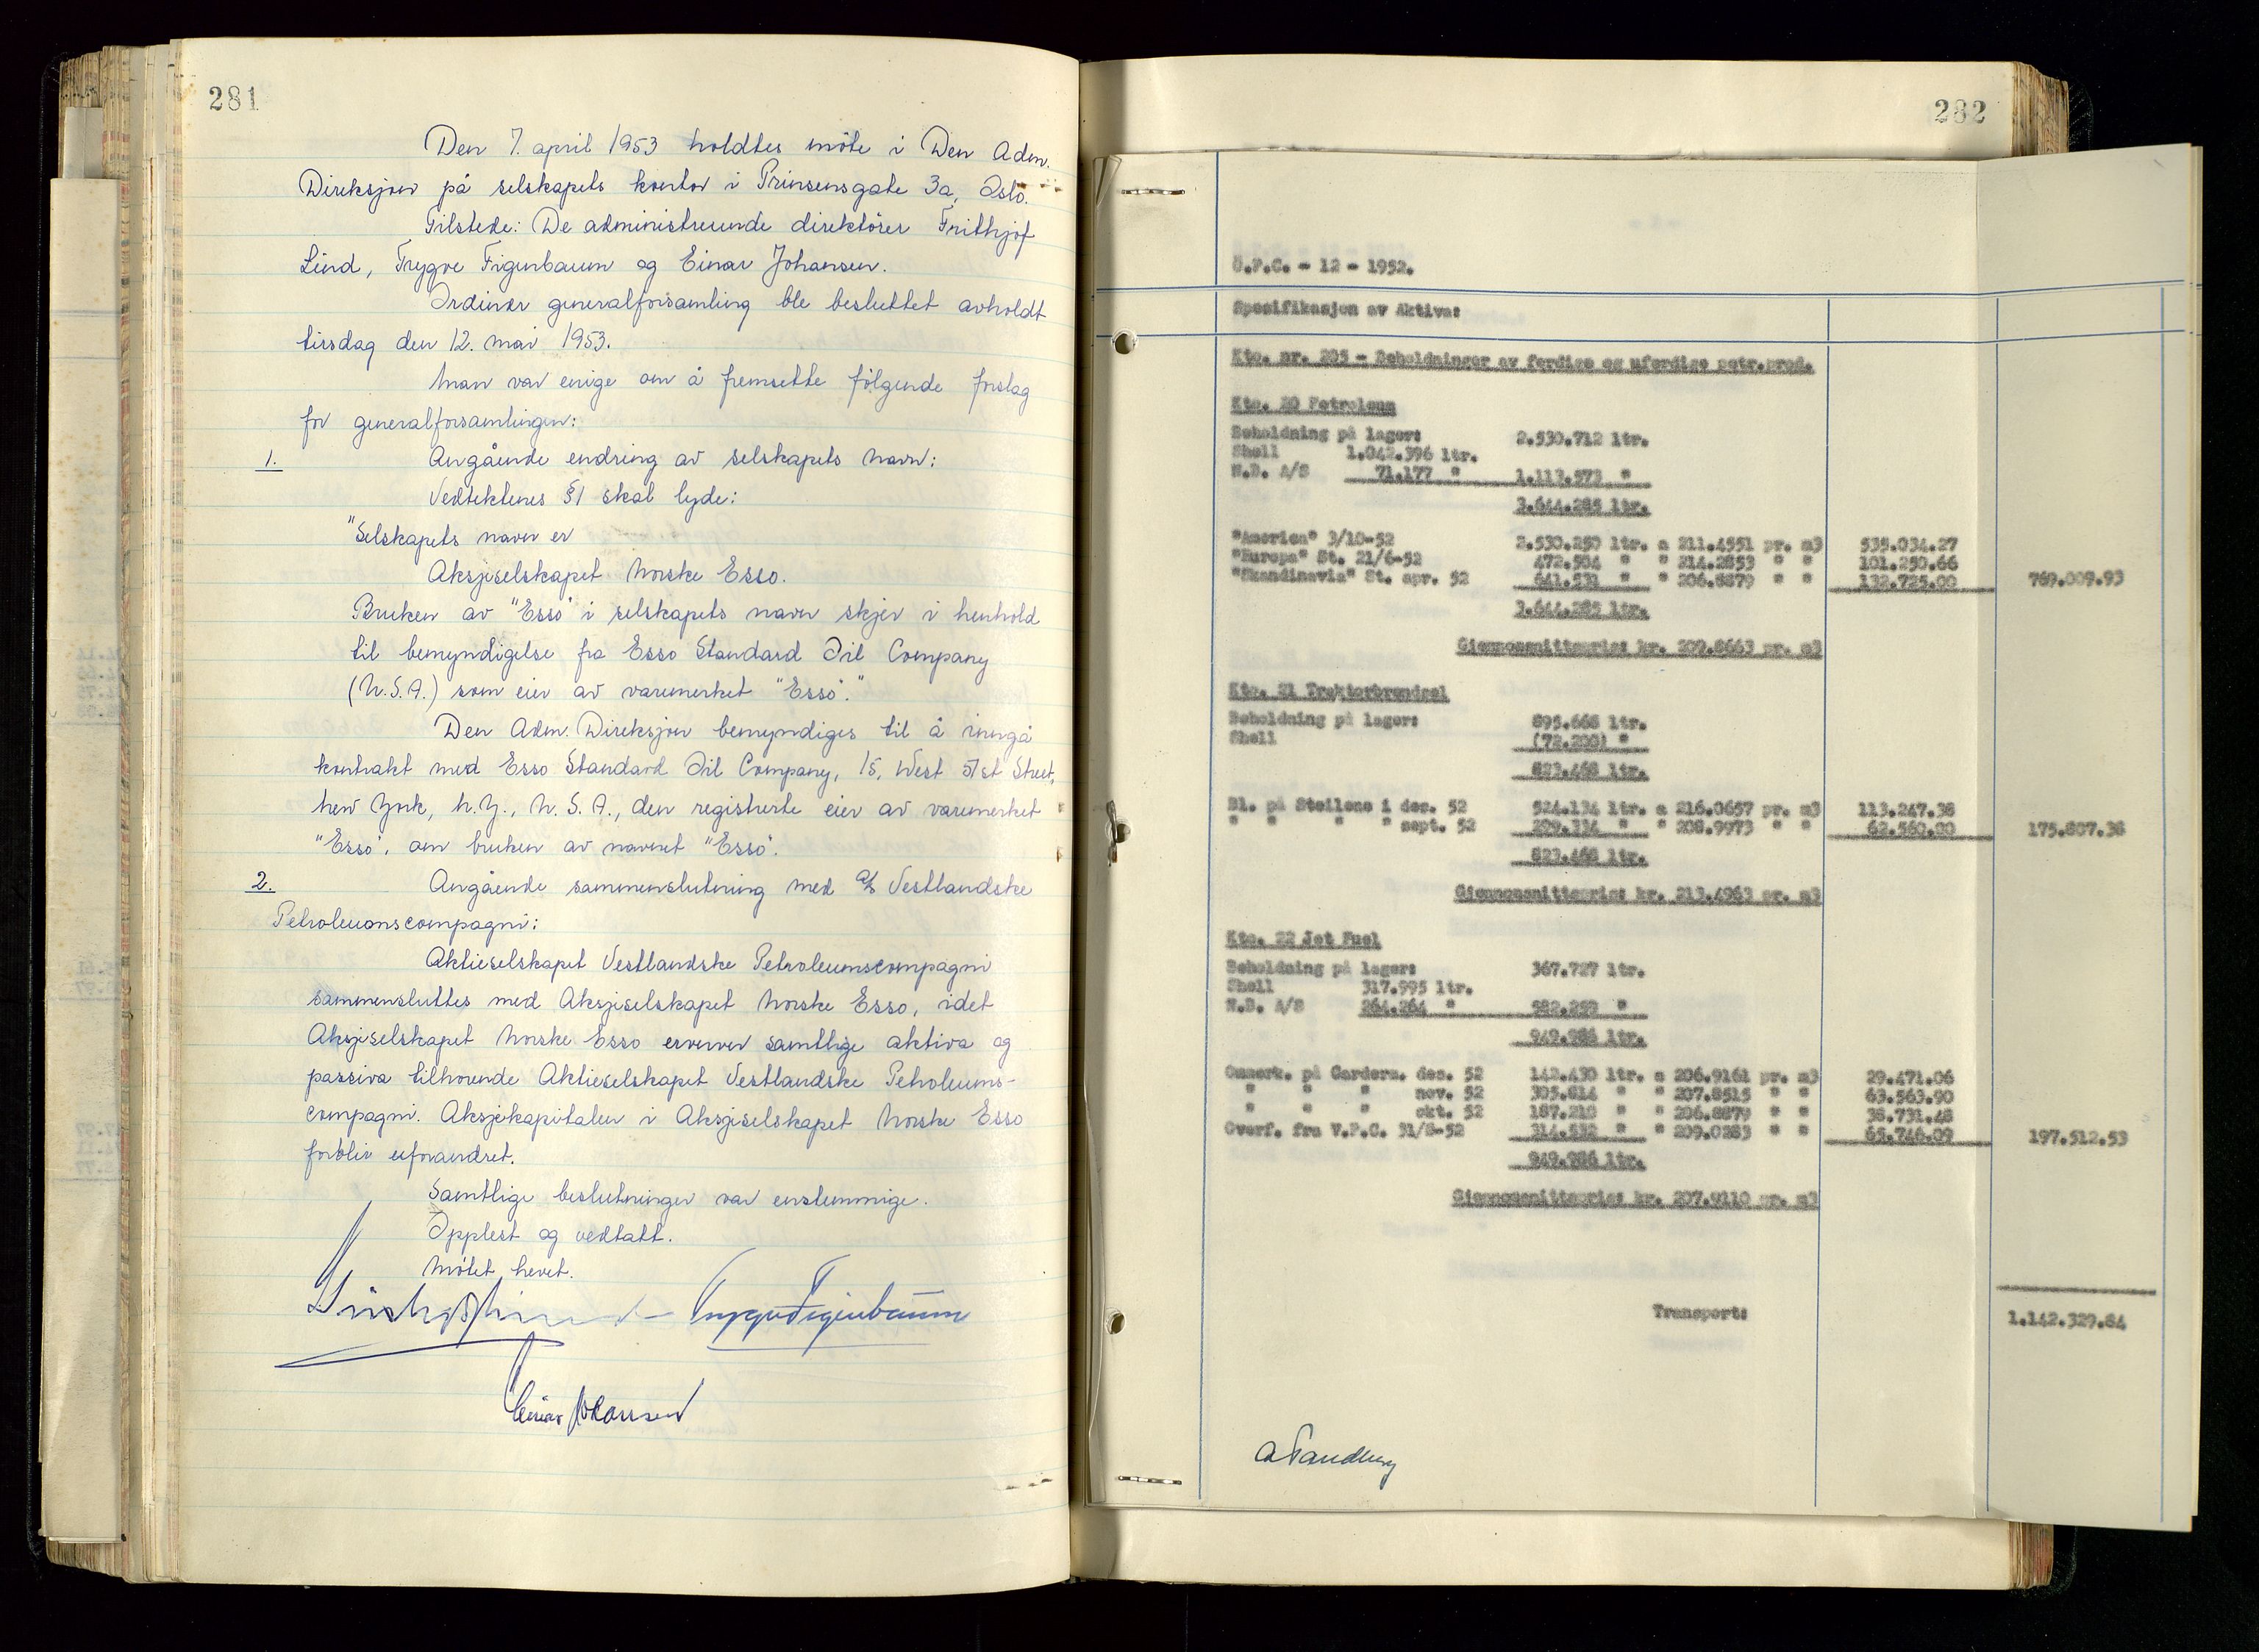 281
Den 7. april 1953 holdtes möte i Den Adm.
Direksjon på selskapets kontor i Prinsensgate 3a, Oslo.
Tilstede: De administrerende direktörer Frithjof
Lind, Trygve Figenbaum og Einar Johansen.
Ordinær generalforsamling ble besluttet avholdt
tirsdag den 12. mai 1953.
Man var enige om å fremsette fölgende forslag
for generalforsamlingen:
1. Angående endring av selskapets navn:
Vedtektenes §1 skal lyde:
"Selskapets navn er
Aksjeselskapet Norske Esso.
Bruken av "Esso" i selskapets navn skjer i henhold
til bemyndigelse fra Esso Standard Oil Company
(U.S.A.) som eier av varemerket "Esso"."
Den Adm. Direksjon bemyndiges til å inngå
kontrakt med Esso Standard Oil Company, 15, West 51st Street,
New York, N.Y., U.S.A., den registrerte eier av varemerket
"Esso", om bruken av navnet "Esso".
2. Angående sammenslutning med A/S Vestlandske
Petroleumscompagni:
Aktieselskapet Vestlandske Petroleumscompagni
sammensluttes med Aksjeselskapet Norske Esso, idet
Aksjeselskapet Norske Esso erverver samtlige aktiva og
passiva tilhörende Aktieselskapet Vestlandske Petroleums-
compagni. Aksjekapitalen i Aksjeselskapet Norske Esso
forblir uforandret.
Samtlige beslutninger var enstemmige.
Opplest og vedtatt.
Mötet hevet.
Trygve Figenbaum
Einar Johansen
282
Ö.P.C. - 12 - 1952.
Spesifikasjon av Aktiva:
Kto. nr. 205 - Beholdninger av ferdige og uferdige petr.prod.
Kto. 20 Petroleum
Beholdning på lager: 2.530.712 ltr.
Shell 1.042.396 ltr.
N.B. A/S 71.177 " 1.113.573 "
3.644.285 ltr.
"America" 3/10-52 2.530.250 ltr. a 211.4551 pr. m3 535.034.27
"Europa" St. 21/6-52 472.504 " " 214.2853 " " 101.250.66
"Skandinavia" St. apr. 52 641.531 " " 206.8879 " " 132.725.00 769.009.93
3.644.285 ltr.
Gjennomsnittspris: kr. 209.8663 pr. m3
Kto. 21 Traktorbrendsel
Beholdning på lager: 895.668 ltr.
Shell (72.200) "
823.468 ltr.
Bl. på Steilene i des. 52 524.134 ltr. a 216.0657 pr. m3 113.247.38
" " " " sept. 52 299.334 " " 208.9973 " " 62.560.00 175.807.38
823.468 ltr.
Gjennomsnittspris: kr. 213.4963 pr. m3
Kto. 22 Jet Fuel
Beholdning på lager: 367.727 ltr.
Shell 317.995 ltr.
N.B. A/S 264.264 " 582.259 "
949.986 ltr.
Ommerk. på Garderm. des. 52 142.430 ltr. a 206.9161 pr. m3 29.471.06
" " " nov. 52 305.814 " " 207.8515 " " 63.563.90
" " " okt. 52 187.210 " " 206.8879 " " 38.731.48
Overf. fra V.P.C. 31/8-52 314.532 " " 209.0283 " " 65.746.09 197.512.53
949.986 ltr.
Gjennomsnittspris: kr. 207.9110 pr. m3
Transport: 1.142.329.84